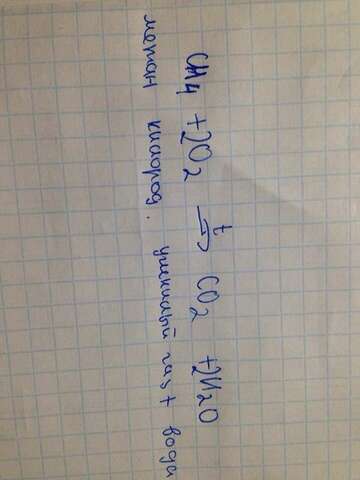 CH4 + 2O2 t⇒ CO2 + 2H2O
метан кислород. углекислый газ + вода